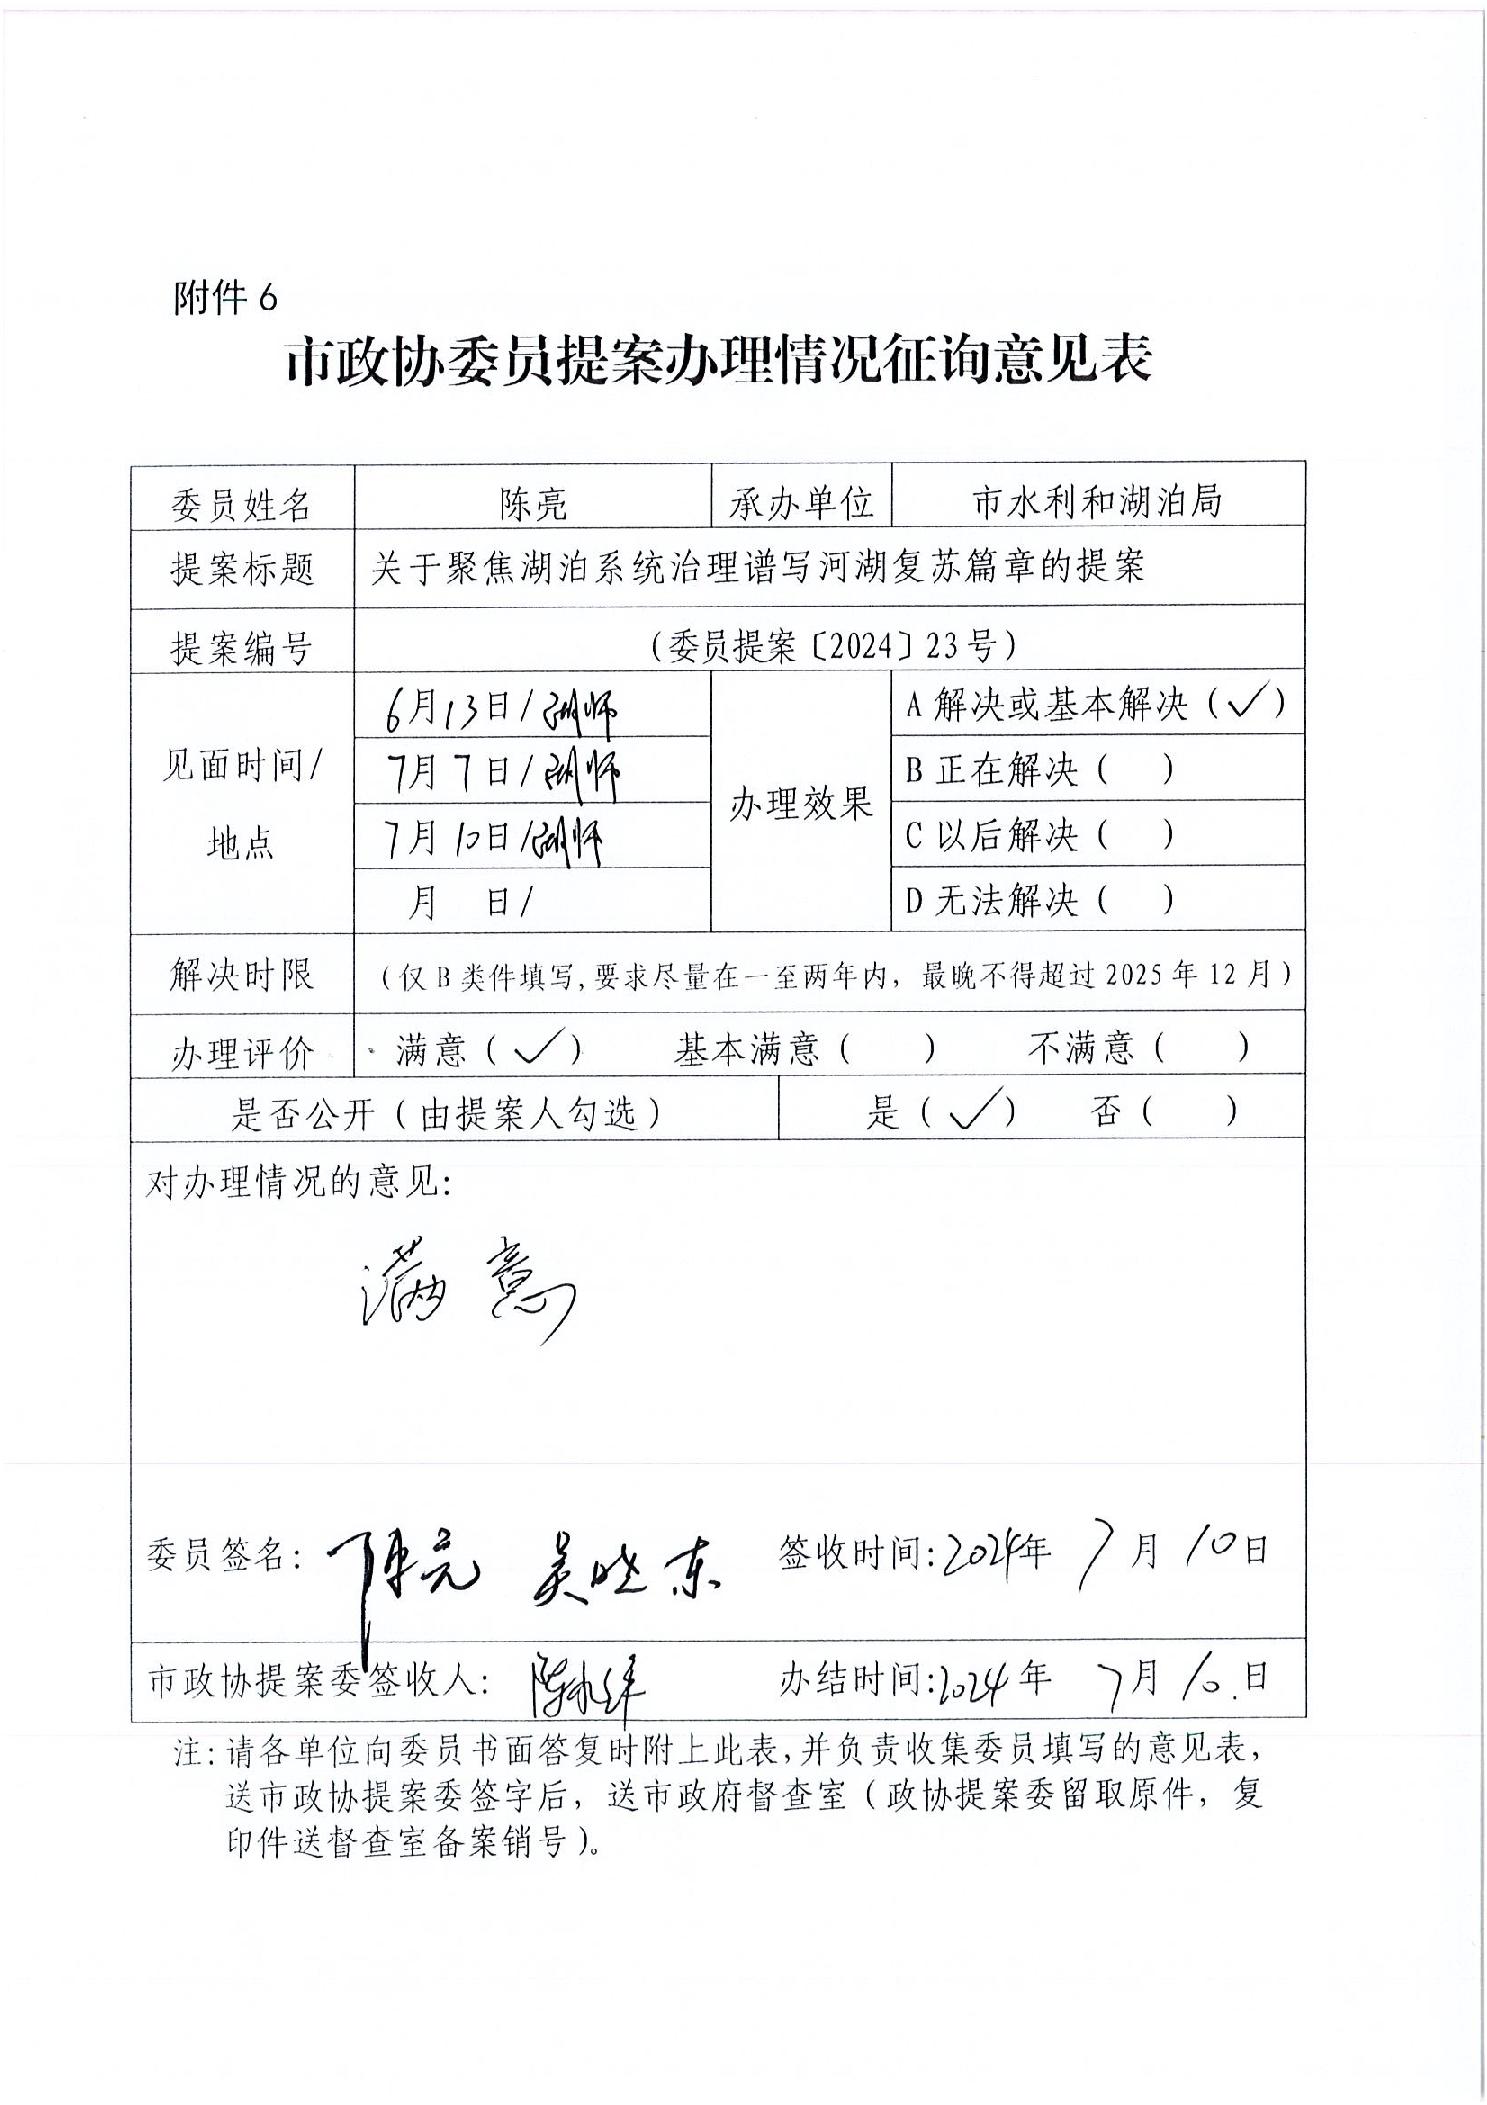 附件6
市政协委员提案办理情况征询意见表
委员姓名 陈亮 承办单位 市水利和湖泊局
提案标题 关于聚焦湖泊系统治理谱写河湖复苏篇章的提案
提案编号 (委员提案〔2024〕23号)
见面时间/地点
6月13日/湖师
7月7日/湖师
7月10日/湖师
月 日/
办理效果
A解决或基本解决(✓)
B正在解决( )
C以后解决( )
D无法解决( )
解决时限 (仅B类件填写,要求尽量在一至两年内，最晚不得超过2025年12月)
办理评价 满意(✓) 基本满意( ) 不满意( )
是否公开(由提案人勾选) 是(✓) 否( )
对办理情况的意见:
满意
委员签名: 陈亮 吴晓东 签收时间:2024年7月10日
市政协提案委签收人: 陈 办结时间:2024年7月10日
注:请各单位向委员书面答复时附上此表,并负责收集委员填写的意见表,
送市政协提案委签字后，送市政府督查室(政协提案委留取原件，复
印件送督查室备案销号)。